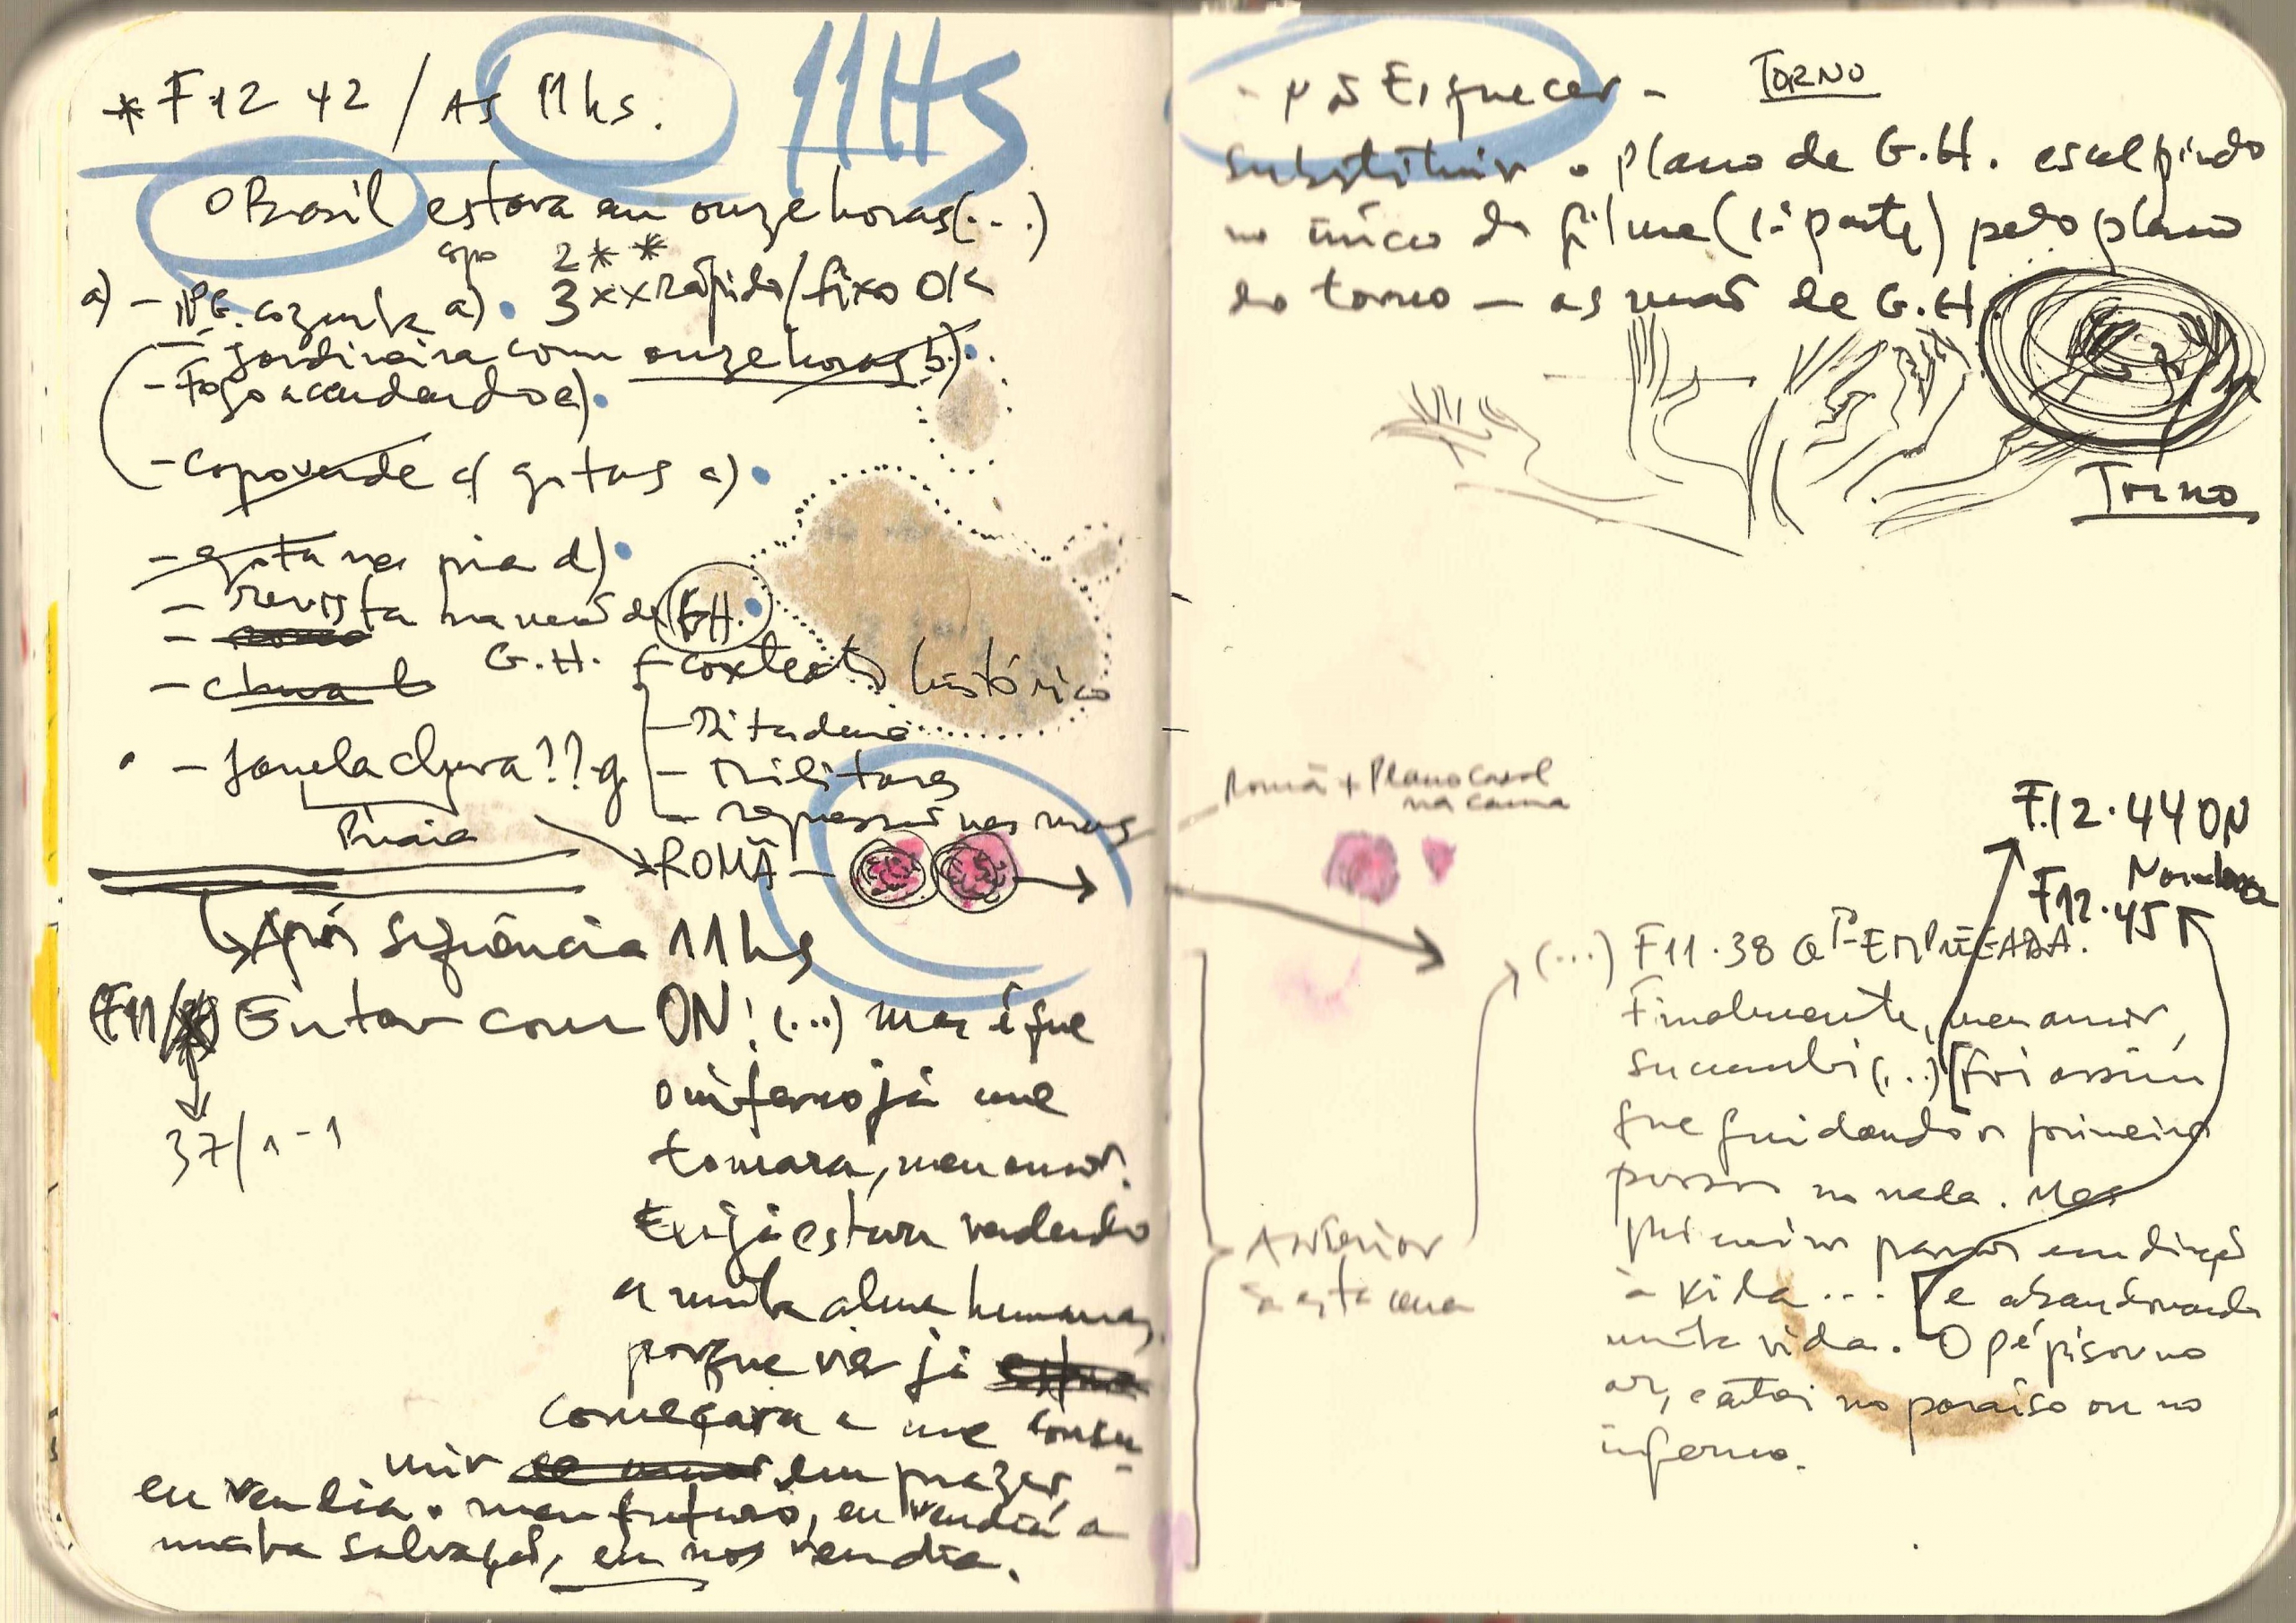 * F12 42 / AS 11hs.
11HS
O Brasil estava em onze horas (...)
copo 2**
a) - PG. cozinha a). 3xx rápido/fixo OK
- jardineira com onze horas b).
- Fogo acendendo e).
- copo verde c/ gotas c)
- gota na pia d)
- revista na mão de G.H.
- chuva
G.H. - contexto histórico
- Ditadura
- militares
- repressão nas ruas
- janela chuva?? g
Praia
ROMÃ -
Após sequência 11hs
(F11/ Entar com ON! (...) mas é que
37/1-1
o inferno já me
tomara, meu amor.
Eu já estava vendendo
a minha alma humana,
porque ver já
começara a me consu-
mir em prazer,
eu vendia o meu futuro, eu vendia a
minha salvação, eu nos vendia.
- Ñ Esquecer -
TORNO
substituir o plano de G.H. esculpindo
no início do filme (1ª parte) pelo plano
do torno - as mãos de G.H.
Torno
Romã + Plano casal
na cama
F.12.44 ON
F12.45
(...) F11.38 QT-EMPREGADA.
Finalmente, meu amor,
sucumbi (...) [Foi assim
que fui dando os primeiros
passos no nada. Meus
primeiros passos em direção
à vida ... [e abandonando
minha vida. O pé pisou no
ar, e entrei no paraíso ou no
inferno.
Anterior
a esta cena